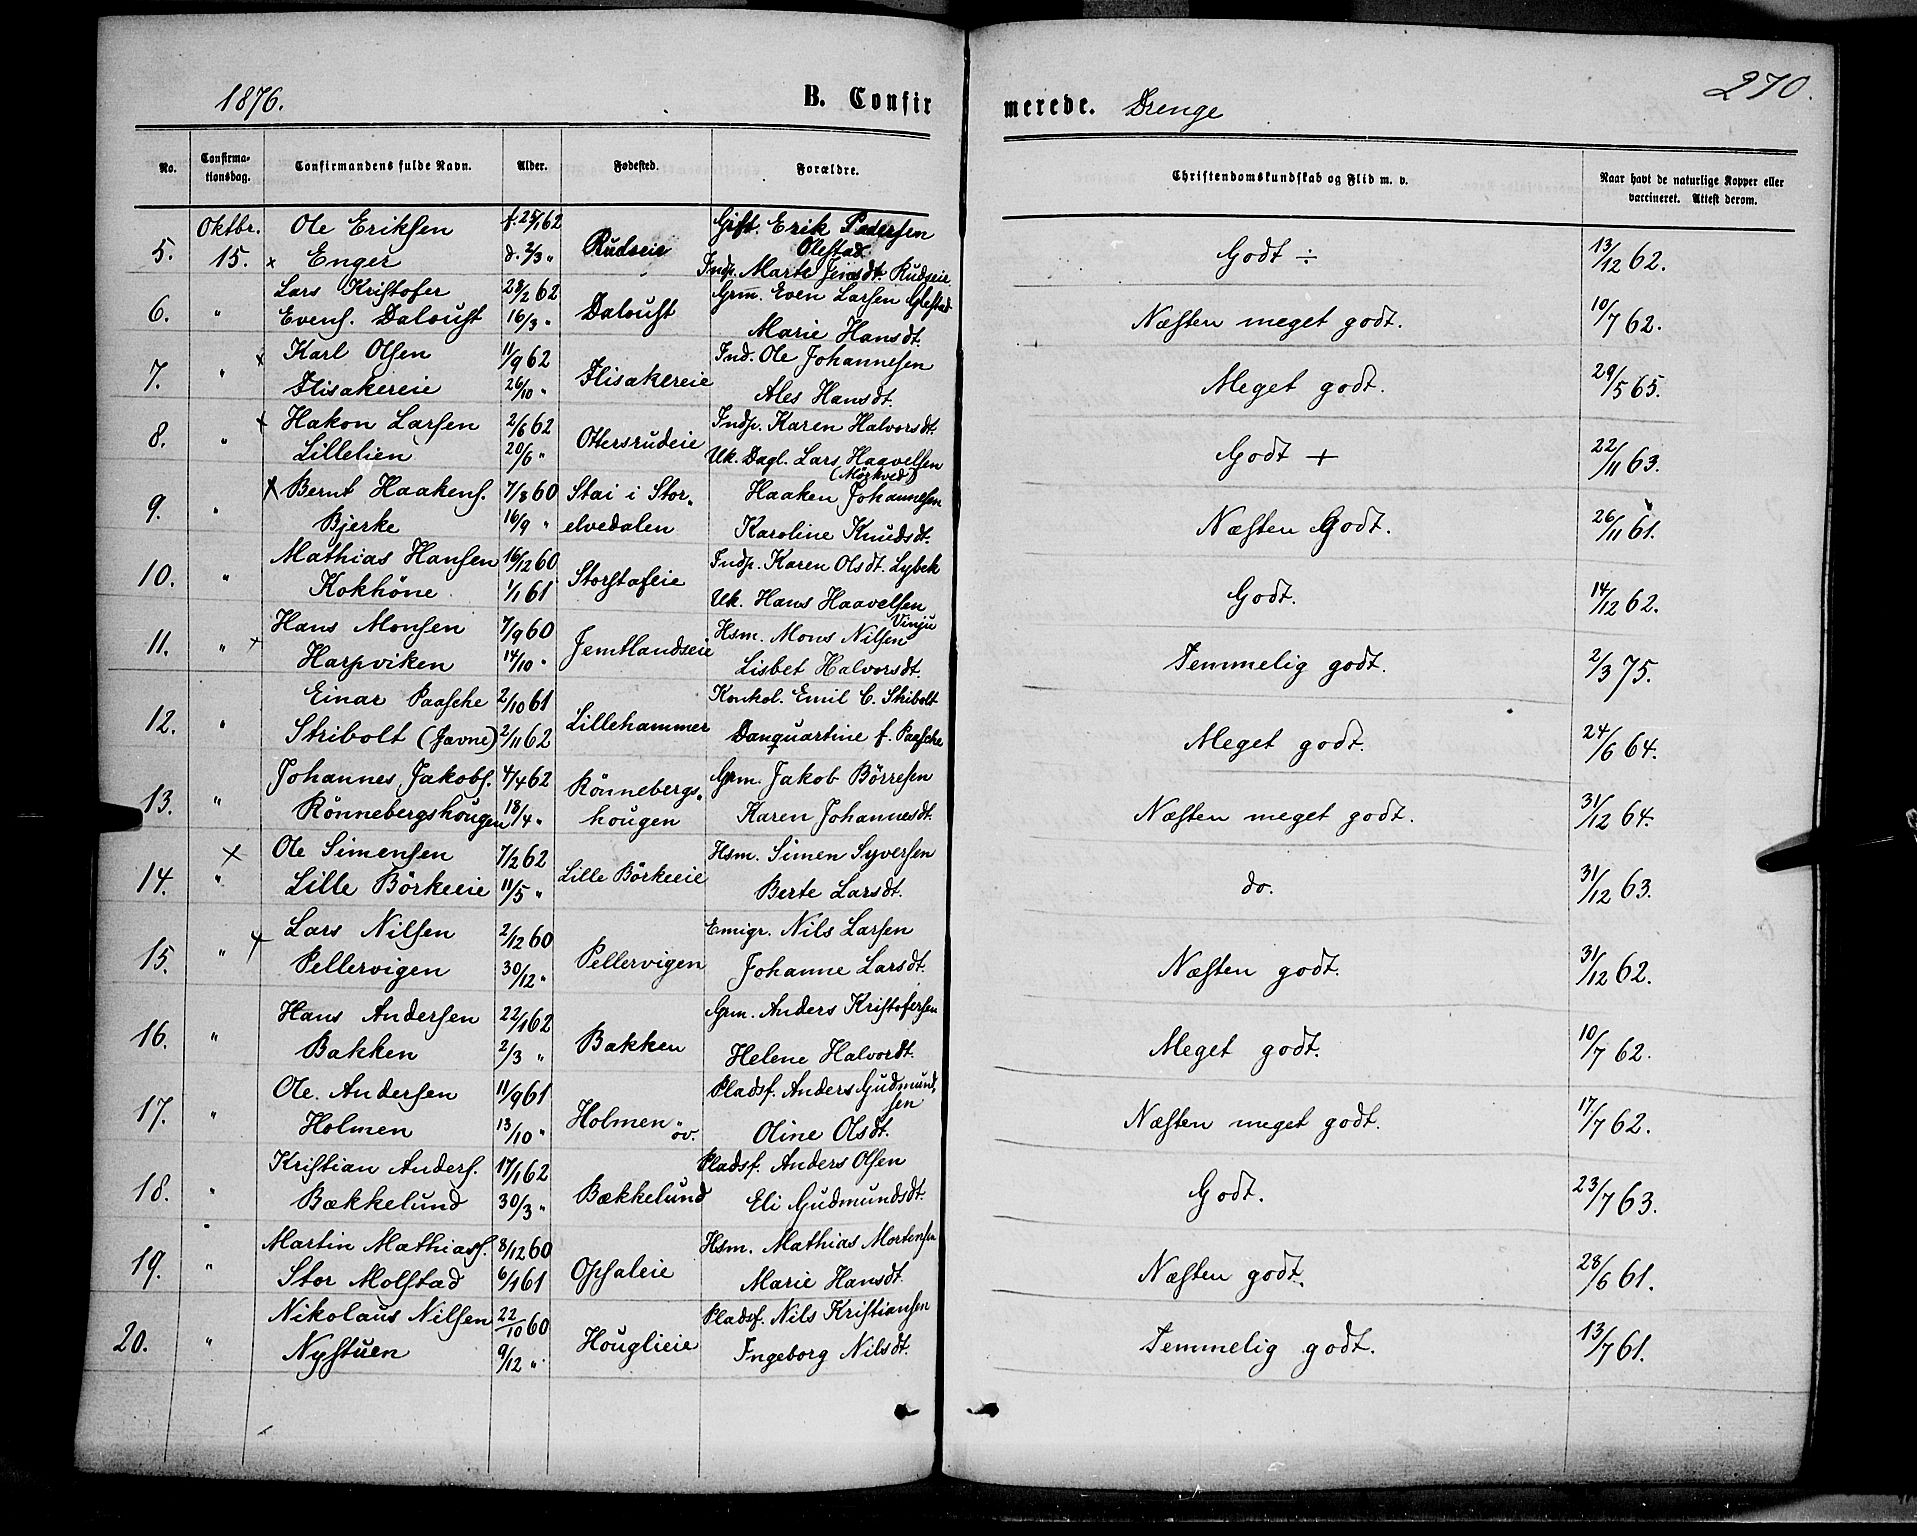 1876.
B. Confir
merede. Drenge
270.
No.
Confirma-
tionsdag.
Confirmandens fulde Navn.
Alder.
Fødested.
Forældre.
Christendomskundskab og Flid m. v.
Naar havt de naturlige Kopper eller
vaccineret. Attest derom.
Oktbr. Ole Eriksen f. 25/1 62 Gift. Erik Pedersen
Olestad
5. 15. x Enger d. 2/3 " Rudseie Indp. Marte Jensdt. Rudseie Godt ÷ 13/12 62.
Lars Kristofer 28/2 62 Grm. Even Larsen Glestad
6. " Evens. Daloust 16/3 " Daloust Marie Hansdt. Næsten meget godt. 10/7 62.
x Karl Olsen 11/9 62 Ind. Ole Johannesen
7. " Flisakereie 26/10 " Flisakereie Ales Hansdt. Meget godt. 29/5 65.
x Hakon Larsen 2/6 62 Indp. Karen Halvorsdt.
8. " Lillelien 20/6 " Ottersrudeie Uk. Dagl. Lars Haavelsen Godt + 22/11 63.
(Mørkved)
x Bernt Haakens. 7/8 60 Stai i Stor- Haaken Johannesen
9. " Bjerke 16/9 " elvedalen Karoline Knudsdt. Næsten Godt. 26/11 61.
Mathias Hansen 16/12 60 Indp. Karen Olsdt. Lybek
10. " Kokhöne 1/1 61 Storstafeie Uk. Hans Haavelsen Godt. 14/12 62.
Vinju
Hans Monsen 7/9 60 Hsm. Mons Nilsen
11. " x Harpviken 14/10 " Jemtlandseie Lisbet Halvorsdt. Temmelig godt. 2/3 75.
Einar Paasche 2/10 61 Konkol. Emil C. Stribolt
12. " Stribolt (Javne) 2/11 62 Lillehammer Danquartine f. Paasche Meget godt. 24/6 64.
Johannes Jakobs. 4/4 62 Rönnebergs- Grm. Jakob Börresen
13. " Rönnebergshougen 18/4 " hougen Karen Johannesdt. Næsten meget godt. 31/12 64.
x Ole Simensen 7/2 62 Hsm. Simen Syversen
14. " Lille Börkeeie 11/5 " Lille Börkeeie Berte Larsdt. do. 31/12 63.
Lars Nilsen 2/12 60 Emigr. Nils Larsen
15. " x Pellervigen 30/12 " Pellervigen Johanne Larsdt. Næsten godt. 31/12 62.
Hans Andersen 22/1 62 Grm. Anders Kristofersen
16. " Bakken 2/3 " Bakken Helene Halvordt. Meget godt. 10/7 62.
Ole Andersen 11/9 61 Pladsf. Anders Gudmund-
sen
17. " Holmen 13/10 " Holmen öv. Oline Olsdt. Næsten meget godt. 17/7 62.
Kristian Anders. 17/1 62 Pladsf. Anders Olsen
18. " Bækkelund 30/3 " Bækkelund Eli Gudmundsdt. Godt. 23/7 63.
Martin Mathias. 8/12 60 Hsm. Mathias Mortensen
19. " Stor Molstad 6/1 61 Opsaleie Marie Hansdt. Næsten godt. 28/6 61.
Nikolaus Nilsen 22/10 60 Pladsf. Nils Kristiansen
20. " Nystuen 9/12 " Houglieie Ingeborg Nilsdt. Temmelig godt. 13/7 61.